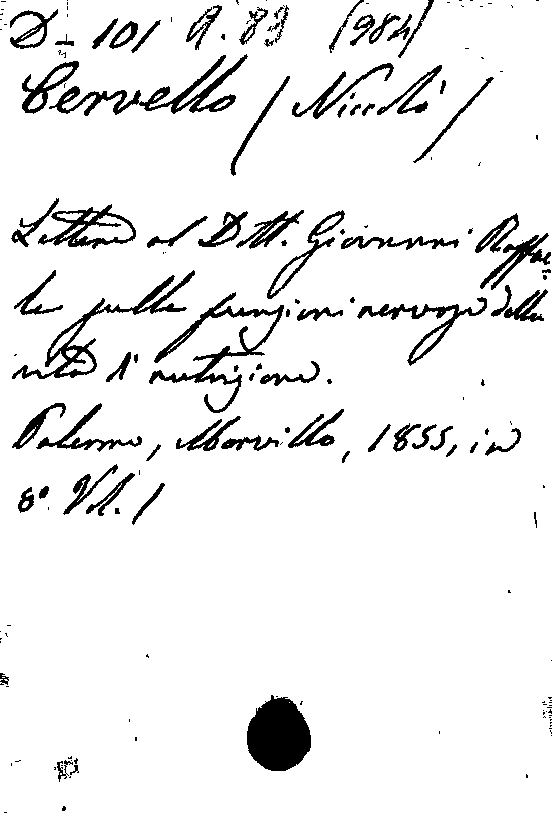 D-101 A.83 (984)
Cervello (Niccolò)
Lettera al Dtt. Giovanni Raffae=
le sulle funzioni nervose della
vita di nutrizione.
Palermo, Morvillo, 1855, in
8° Vol. 1